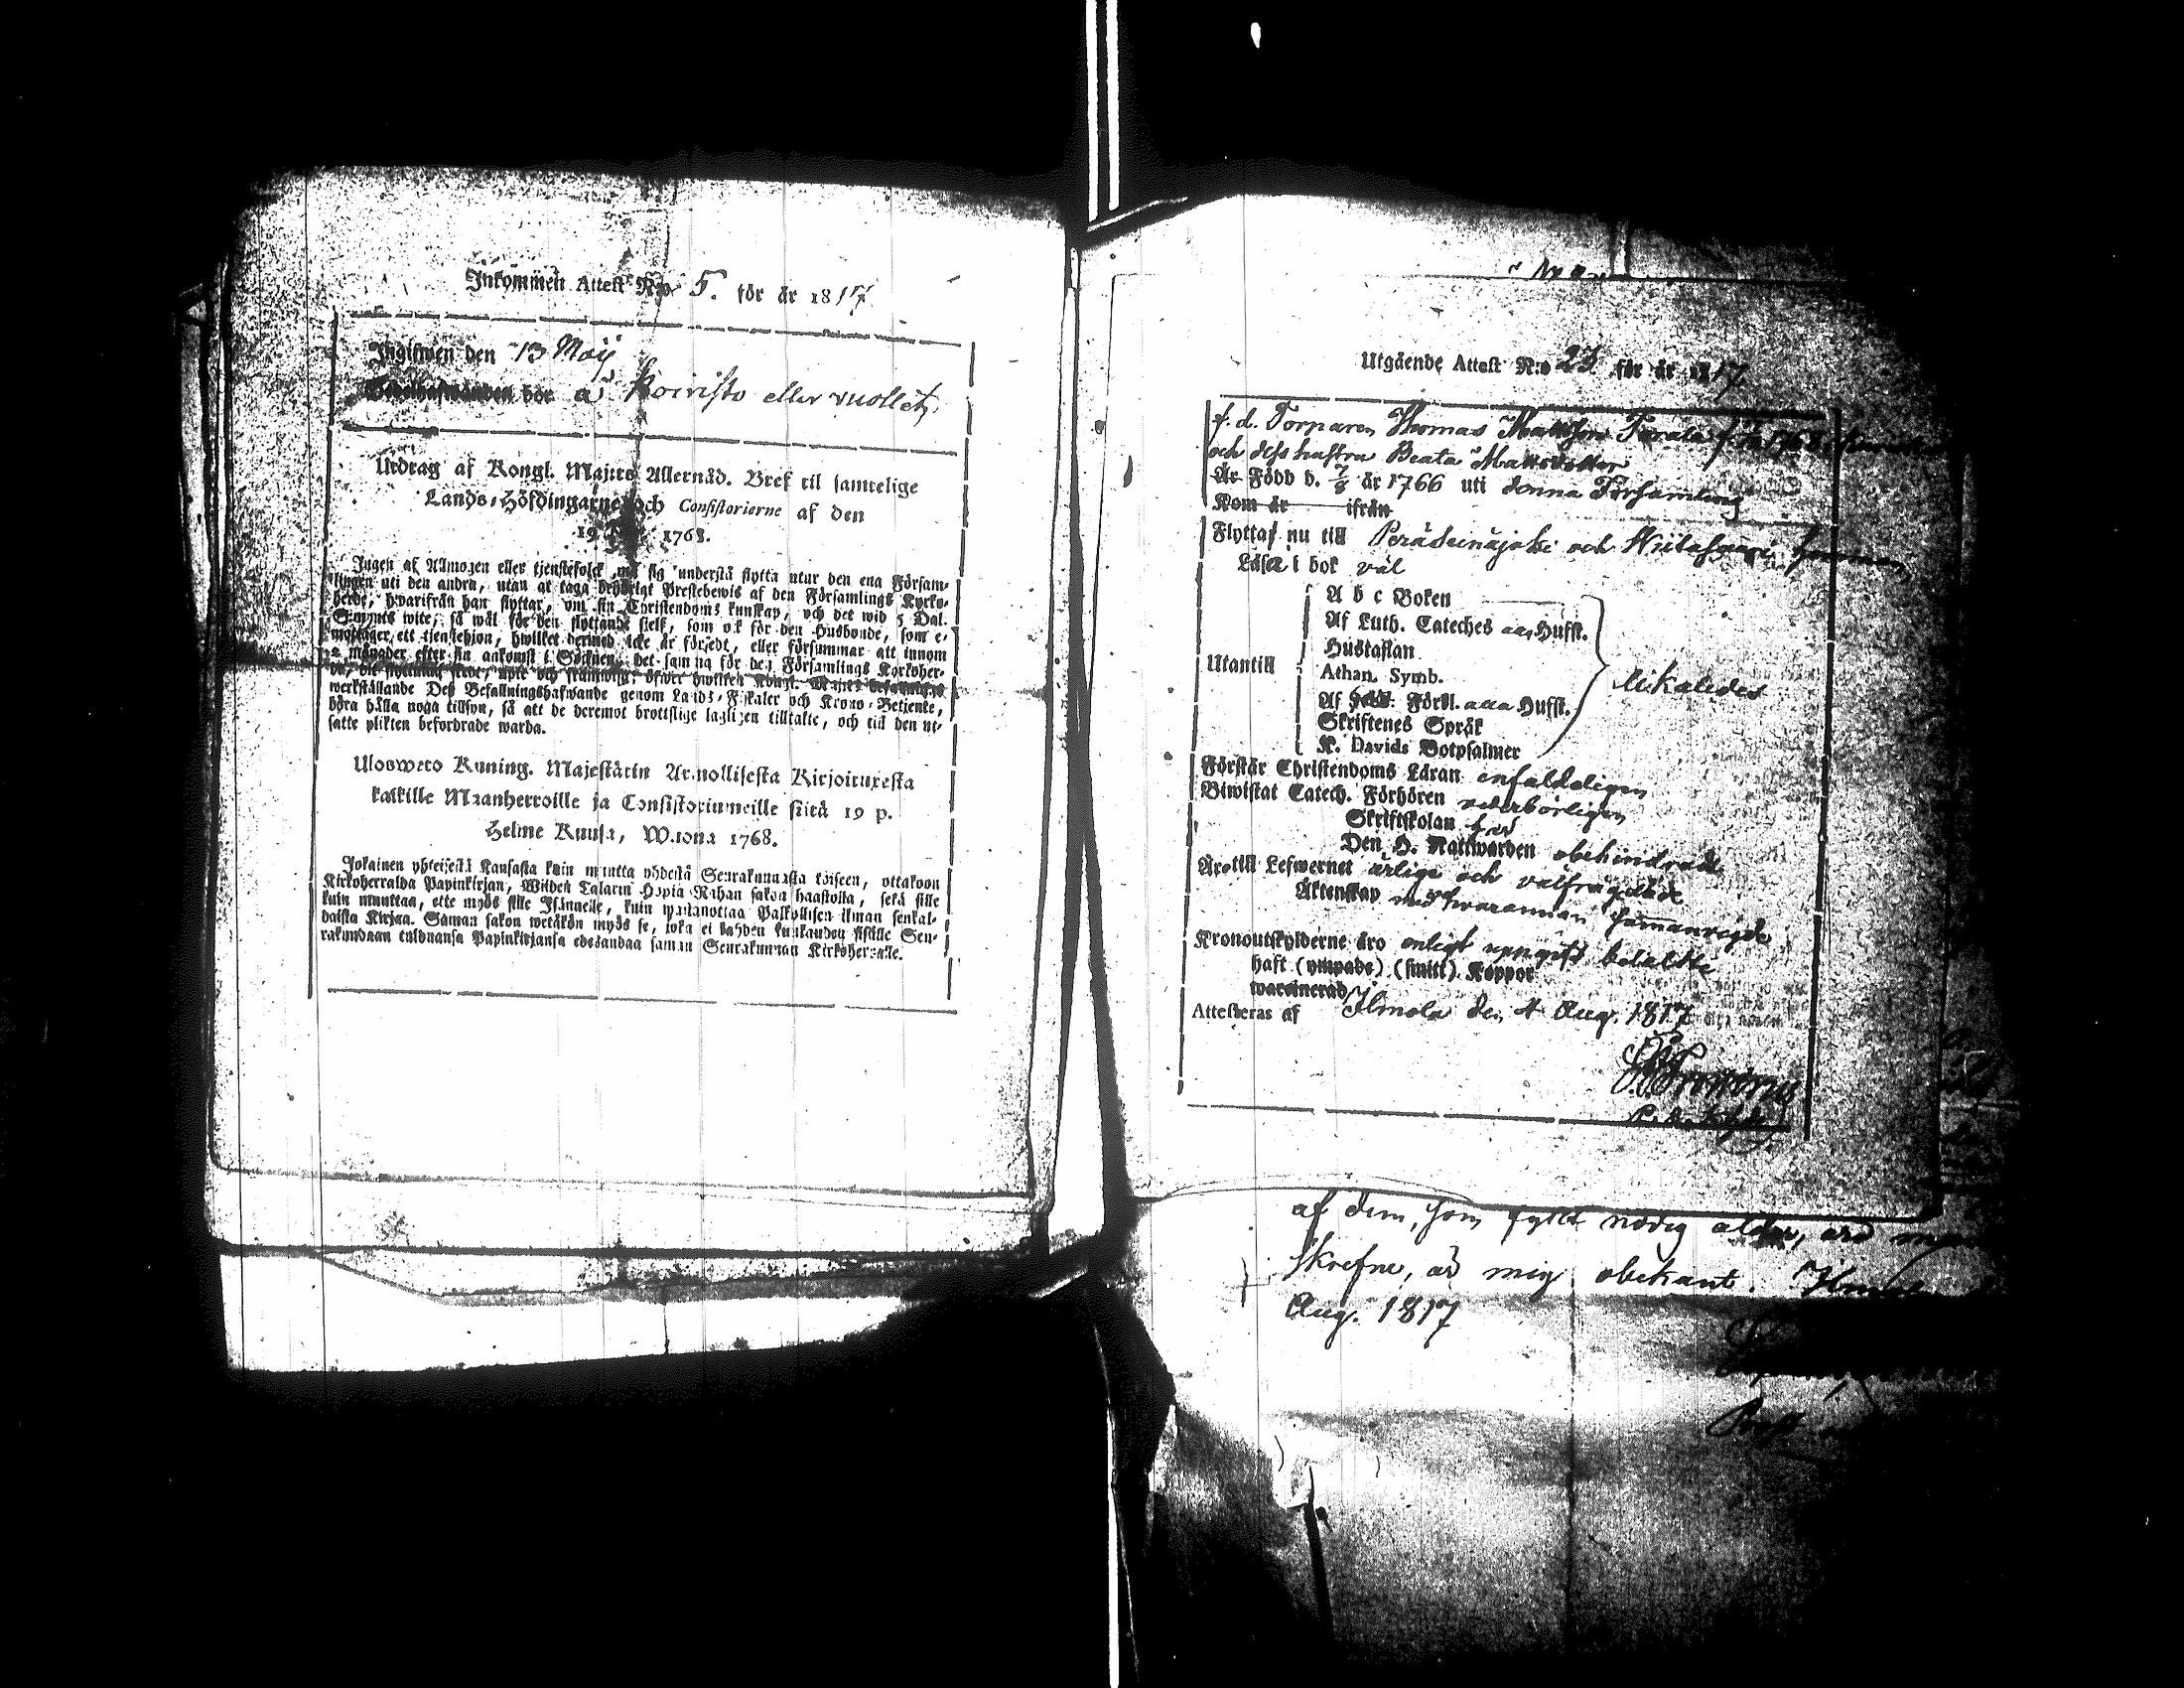 Inkommen Attest N:o 5. för år 1817
Ingifwen den 13 Maij
bor å Koivisto eller vuollet
Utdrag af Kongl. Majtts Allernåd. Bref til samtelige
Lands-Höfdingarne och Consistorierne af den
19 1768.
Ingen af Allmogen eller tjenstefolck må sig understå flytta utur den ena Försam-
lingen uti den andra, utan at taga behörigt Prestebewis af den Församlings Kyrko-
herde, hwarifrån han flyttar, om sin Christendoms kunskap, och det wid 5 Dal.
S:mynts wite, så wäl för den flyttande sielf, som ock för den Husbonde, som e-
mottager ett tjenstehion, hwilket dermed icke är försedt, eller försummar att innom
2 månader efter sin ankomst i Socknen, det samma för den Församlings Kyrkoher-
werkställande Dess Befallningshafwande genom Lands-Fiskaler och Krono-Betjente,
böra hålla noga tillsyn, så att de deremot brottslige lagligen tilltalte, och till den ut-
satte plikten befordrade warda.
Ulosweto Kuning. Majestätin Armollisesta Kirjoituxesta
kaikille Maanherroille ja Consistoriumeille siitä 19 p.
Helme Kuusa, Wuona 1768.
Jokainen yhteisestä Kansasta kuin muutta yhdestä Seurakunnasta toiseen, ottakoon
Kirkoherralda Papinkirjan, Wiiden Talarin Hopia Rahan sakon haastolla, sekä sille
kuin muuttaa, ette myös sille Isännelle, kuin wastanottaa Palkollisen ilman senkal-
daista Kirjaa. Saman sakon wetäkön myös se, joka ei kahden kuukauden sisälle Seu-
rakundaan tulduansa Papinkirjansa edesandaa saman Seurakunnan Kirkoherralle.
Utgående Attest N:o 23 för år 1817.
f. d. Torparen Thomas Mattsson
och dess hustru Beata Mattsdotter
Är Född d. 7/8 år 1766 uti denna Församling
Kom år ifrån
Flyttas nu till Peräseinäjoki och
Läsa i bok väl
A b c Boken
Af Luth. Cateches alla Hufst.
Hustaflan
Utantill Athan. Symb.
likaledes
Af Förkl. alla Hufst.
Skriftenes Språk
K. Davids Botpsalmer
Förstår Christendoms Läran enfaldeligen
Biwistat Catech. Förhören vederbörligen
Skriftskolan
Den H. Nattwarden obehindrade
Äro till Lefwernet ärlige och välfrägdade
Äktenskap med hvarannan sammanvigde
Kronoutskylderne äro enligt uppgift betalte
haft (ympade) (smitt) Koppor
waccinerad
Attesteras af Ilmola den 4 Aug. 1817
af dem, som fyllt nödig ålder, äro
skrefne, är mig obekant. Ilmola
Aug. 1817